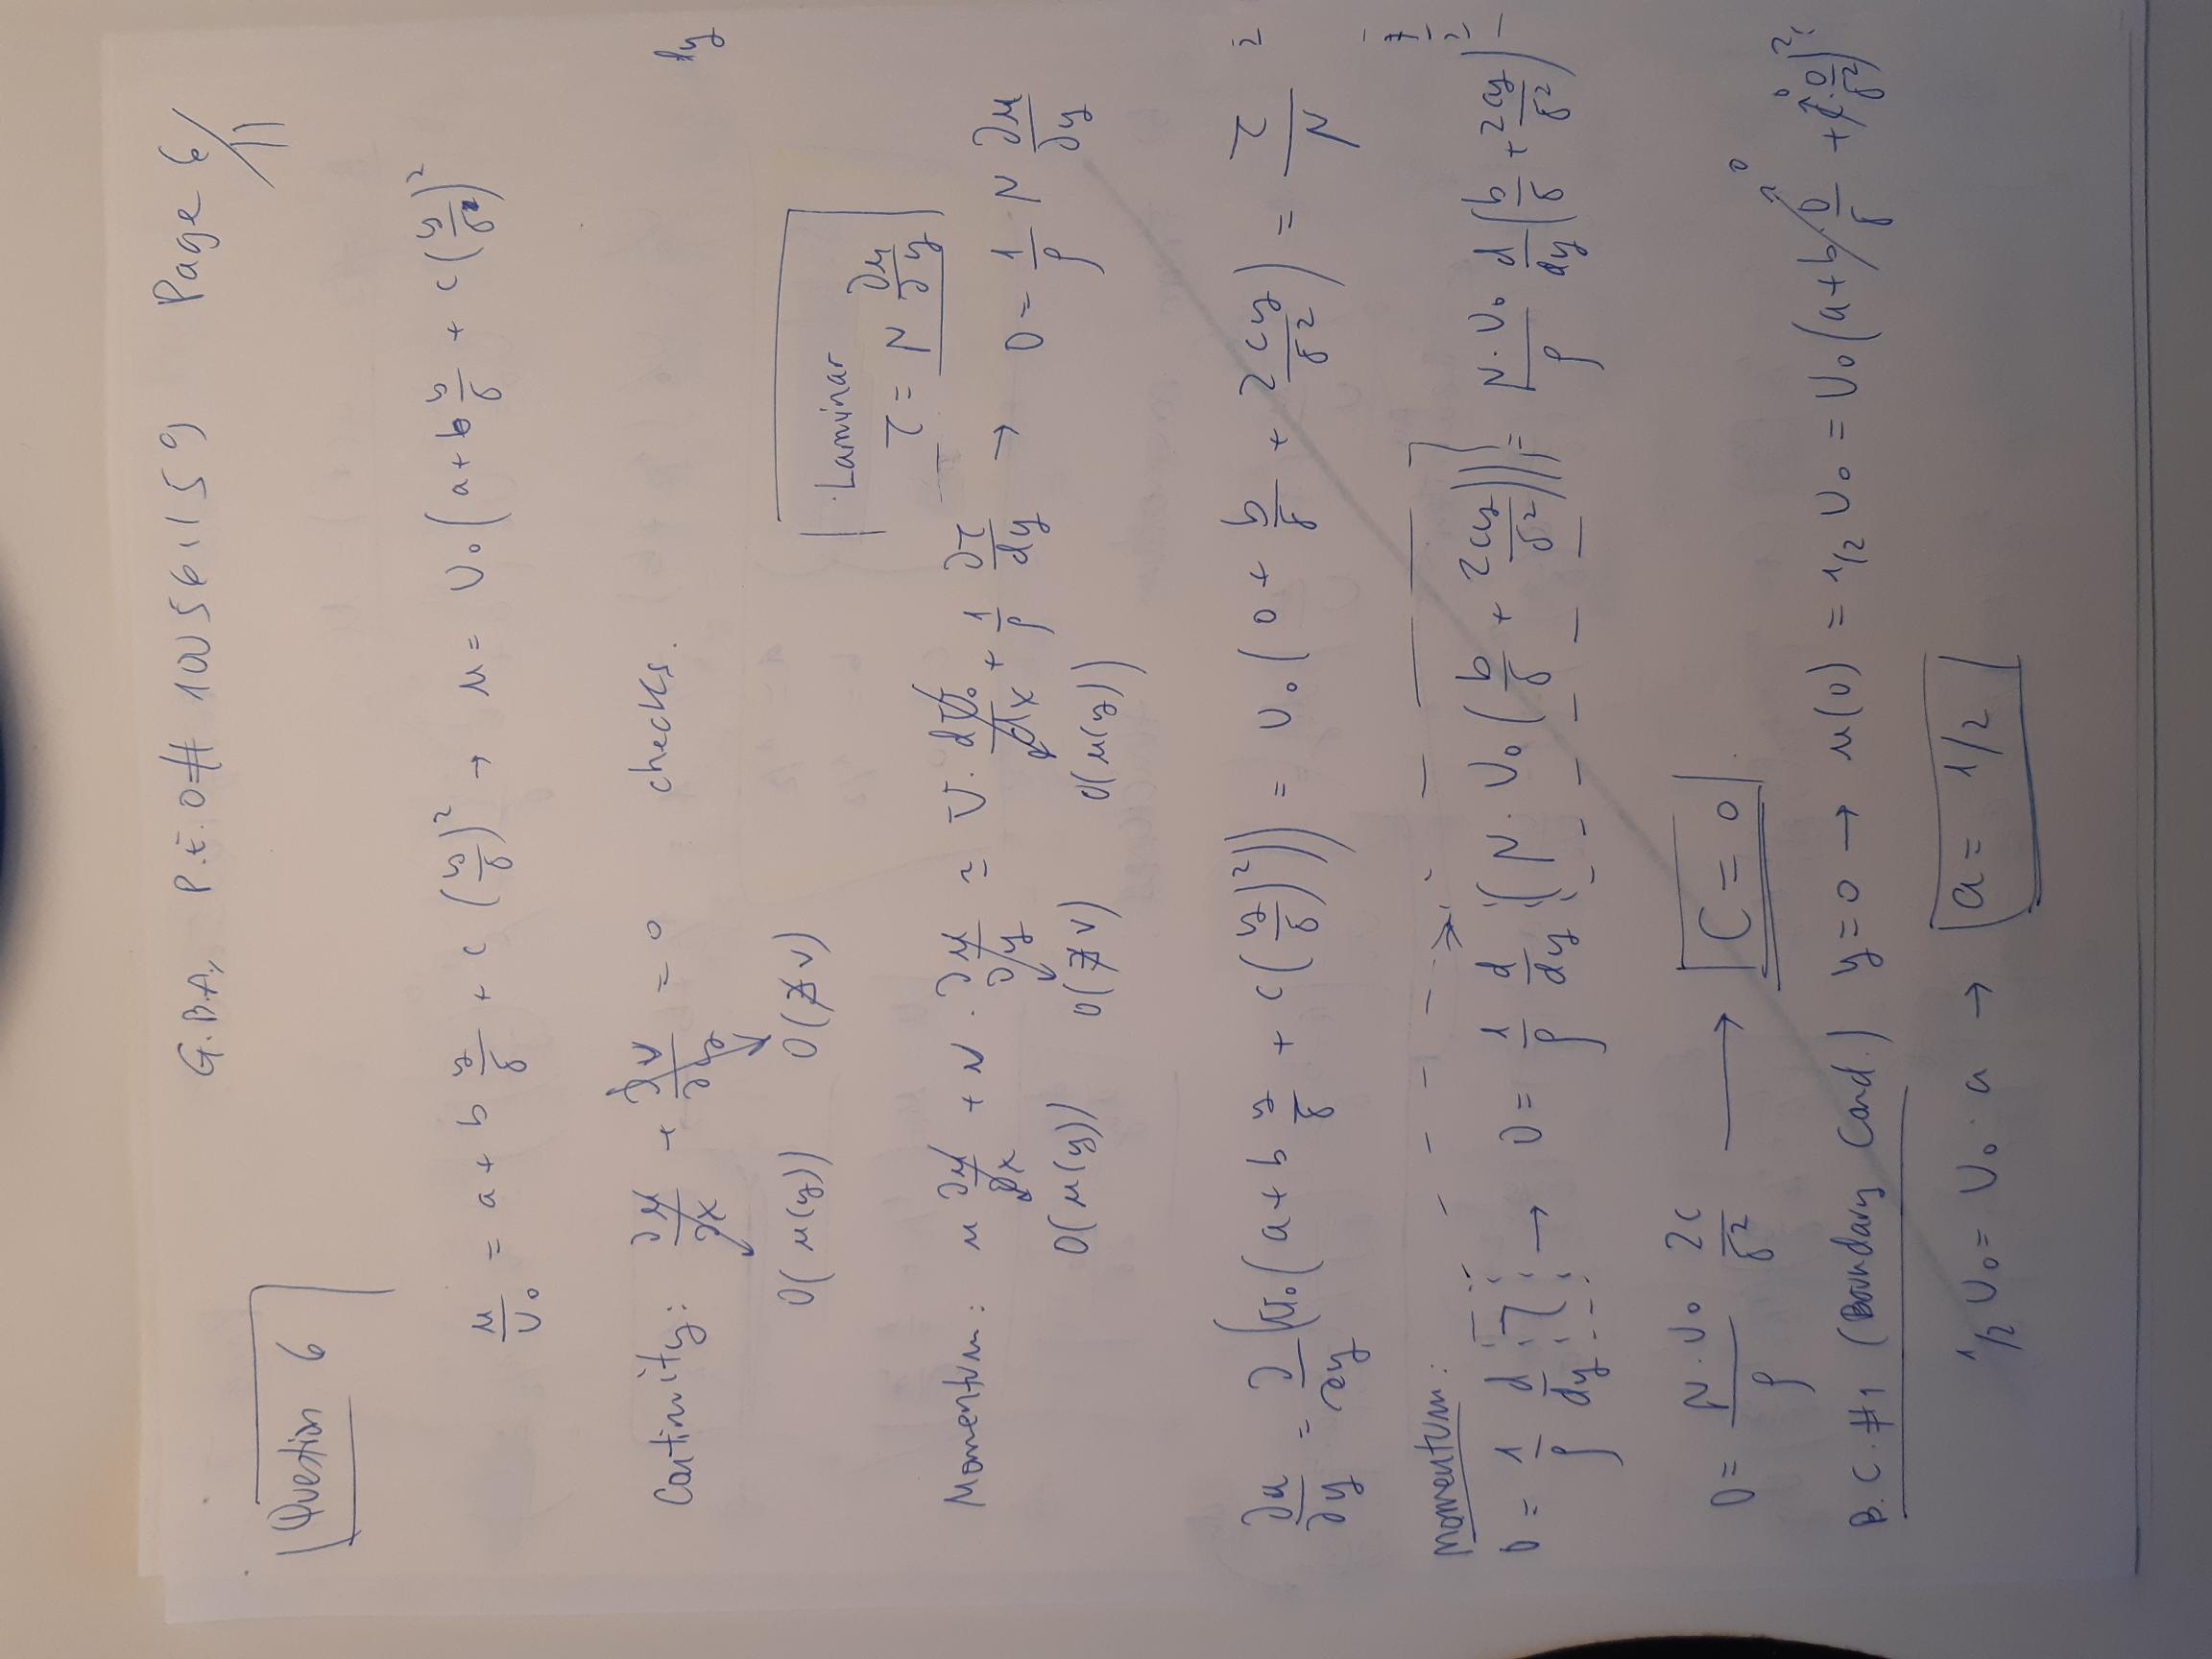 G.B.A, P.E.O# 100561159 Page 6/11
Question 6
u/U₀ = a + b y/δ + c (y/δ)² → u = U₀ (a + b y/δ + c (y/δ)²
Continuity: ∂u/∂x + ∂v/∂y = 0 checks.
ly
0(u(y)) 0(∄ v)
Laminar
τ = μ ∂u/∂y
Momentum: u ∂u/∂x + v · ∂u/∂y = U · dU₀/dx + 1/ρ ∂τ/dy → 0 = 1/ρ μ ∂u/∂y
0(u(y)) 0(∄ v) 0(u(y))
∂u/∂y = ∂/∂y (U₀ (a + b y/δ + c (y/δ)²)) = U₀ (0 + b/δ + 2cy/δ²) = τ/μ
Momentum:
0 = 1/ρ d/dy τ → 0 = 1/ρ d/dy (μ · U₀ (b/δ + 2cy/δ²)) = μ · U₀/ρ d/dy (b/δ + 2cy/δ²)
0 = μ · U₀/ρ 2c/δ² → C = 0.
B.C. #1 (Boundary Cond.) y = 0 → u(0) = 1/2 U₀ = U₀ (a + b · 0/δ + c · 0/δ²)²
0 0
1/2 U₀ = U₀ · a → a = 1/2